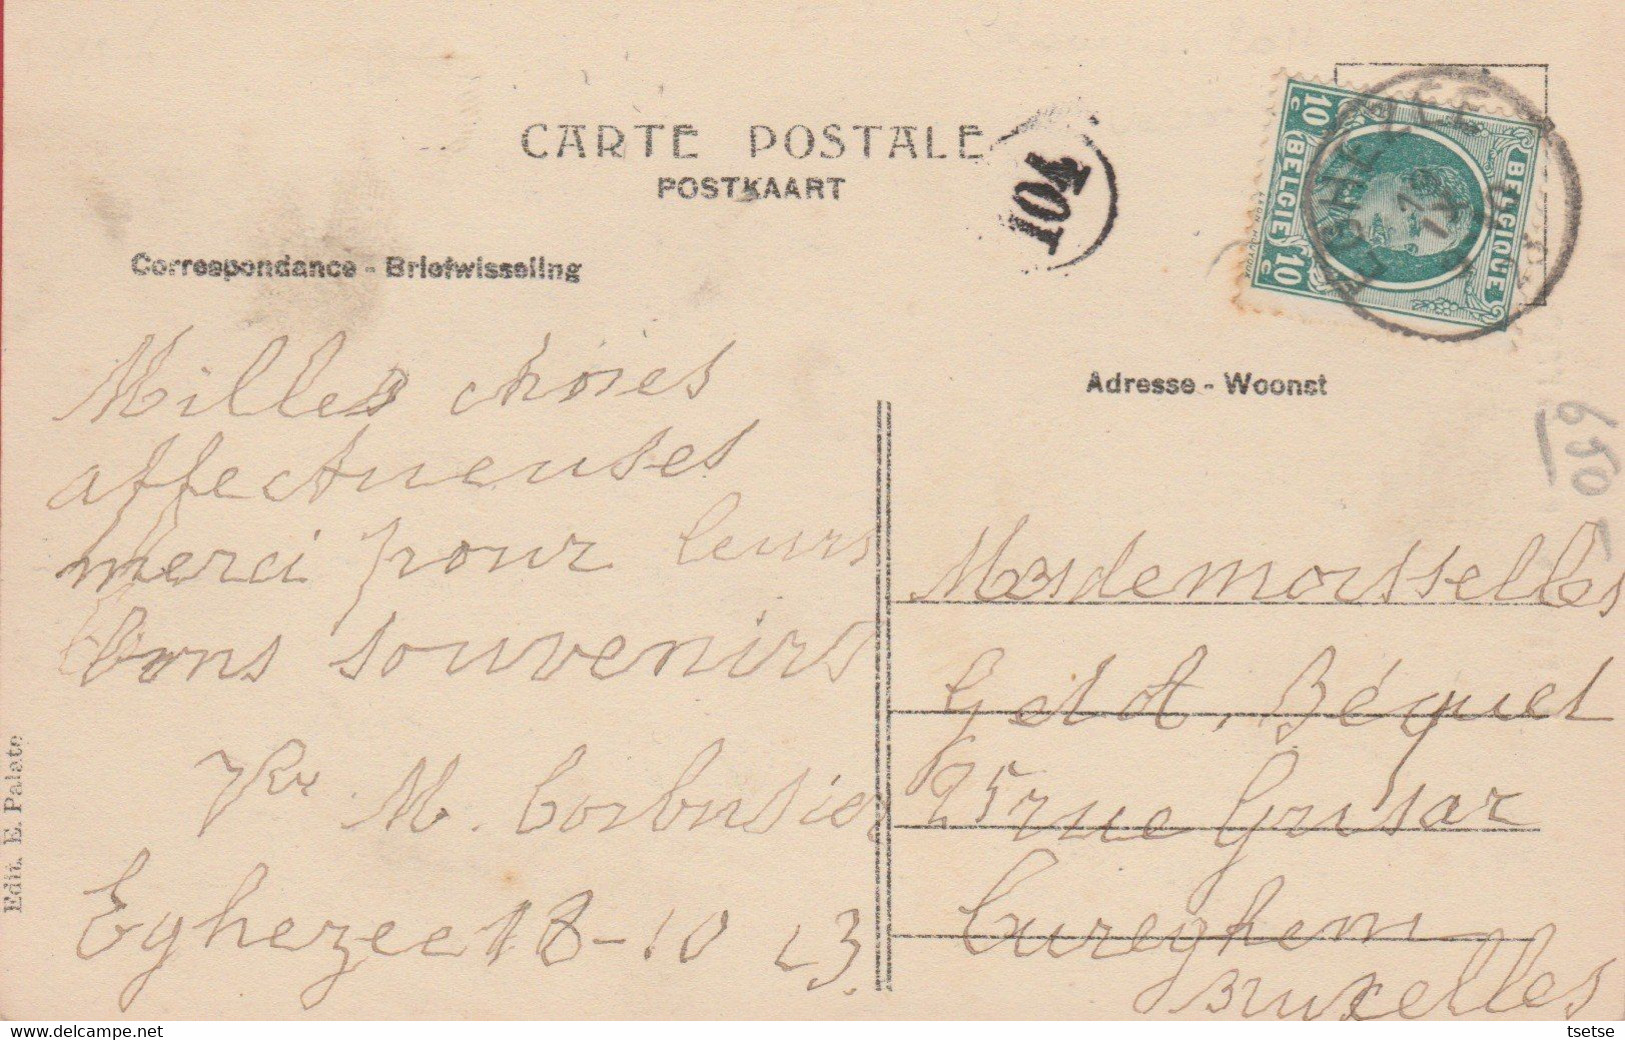 CARTE POSTALE
POSTKAART
104
10 c (BELGIE) 10 c
BELGIQUE
EGHEZEE
Correspondance - Briefwisseling
Adresse - Woonst
650
Milles choses
affectueuses
merci pour leurs
bons souvenirs
M. Corbusier
Eghezee 18-10 23
Mesdemoisselles
G et A. Béquet
25 rue Grisar
Cureghem
Bruxelles
Edit. E. Palate
tsetse